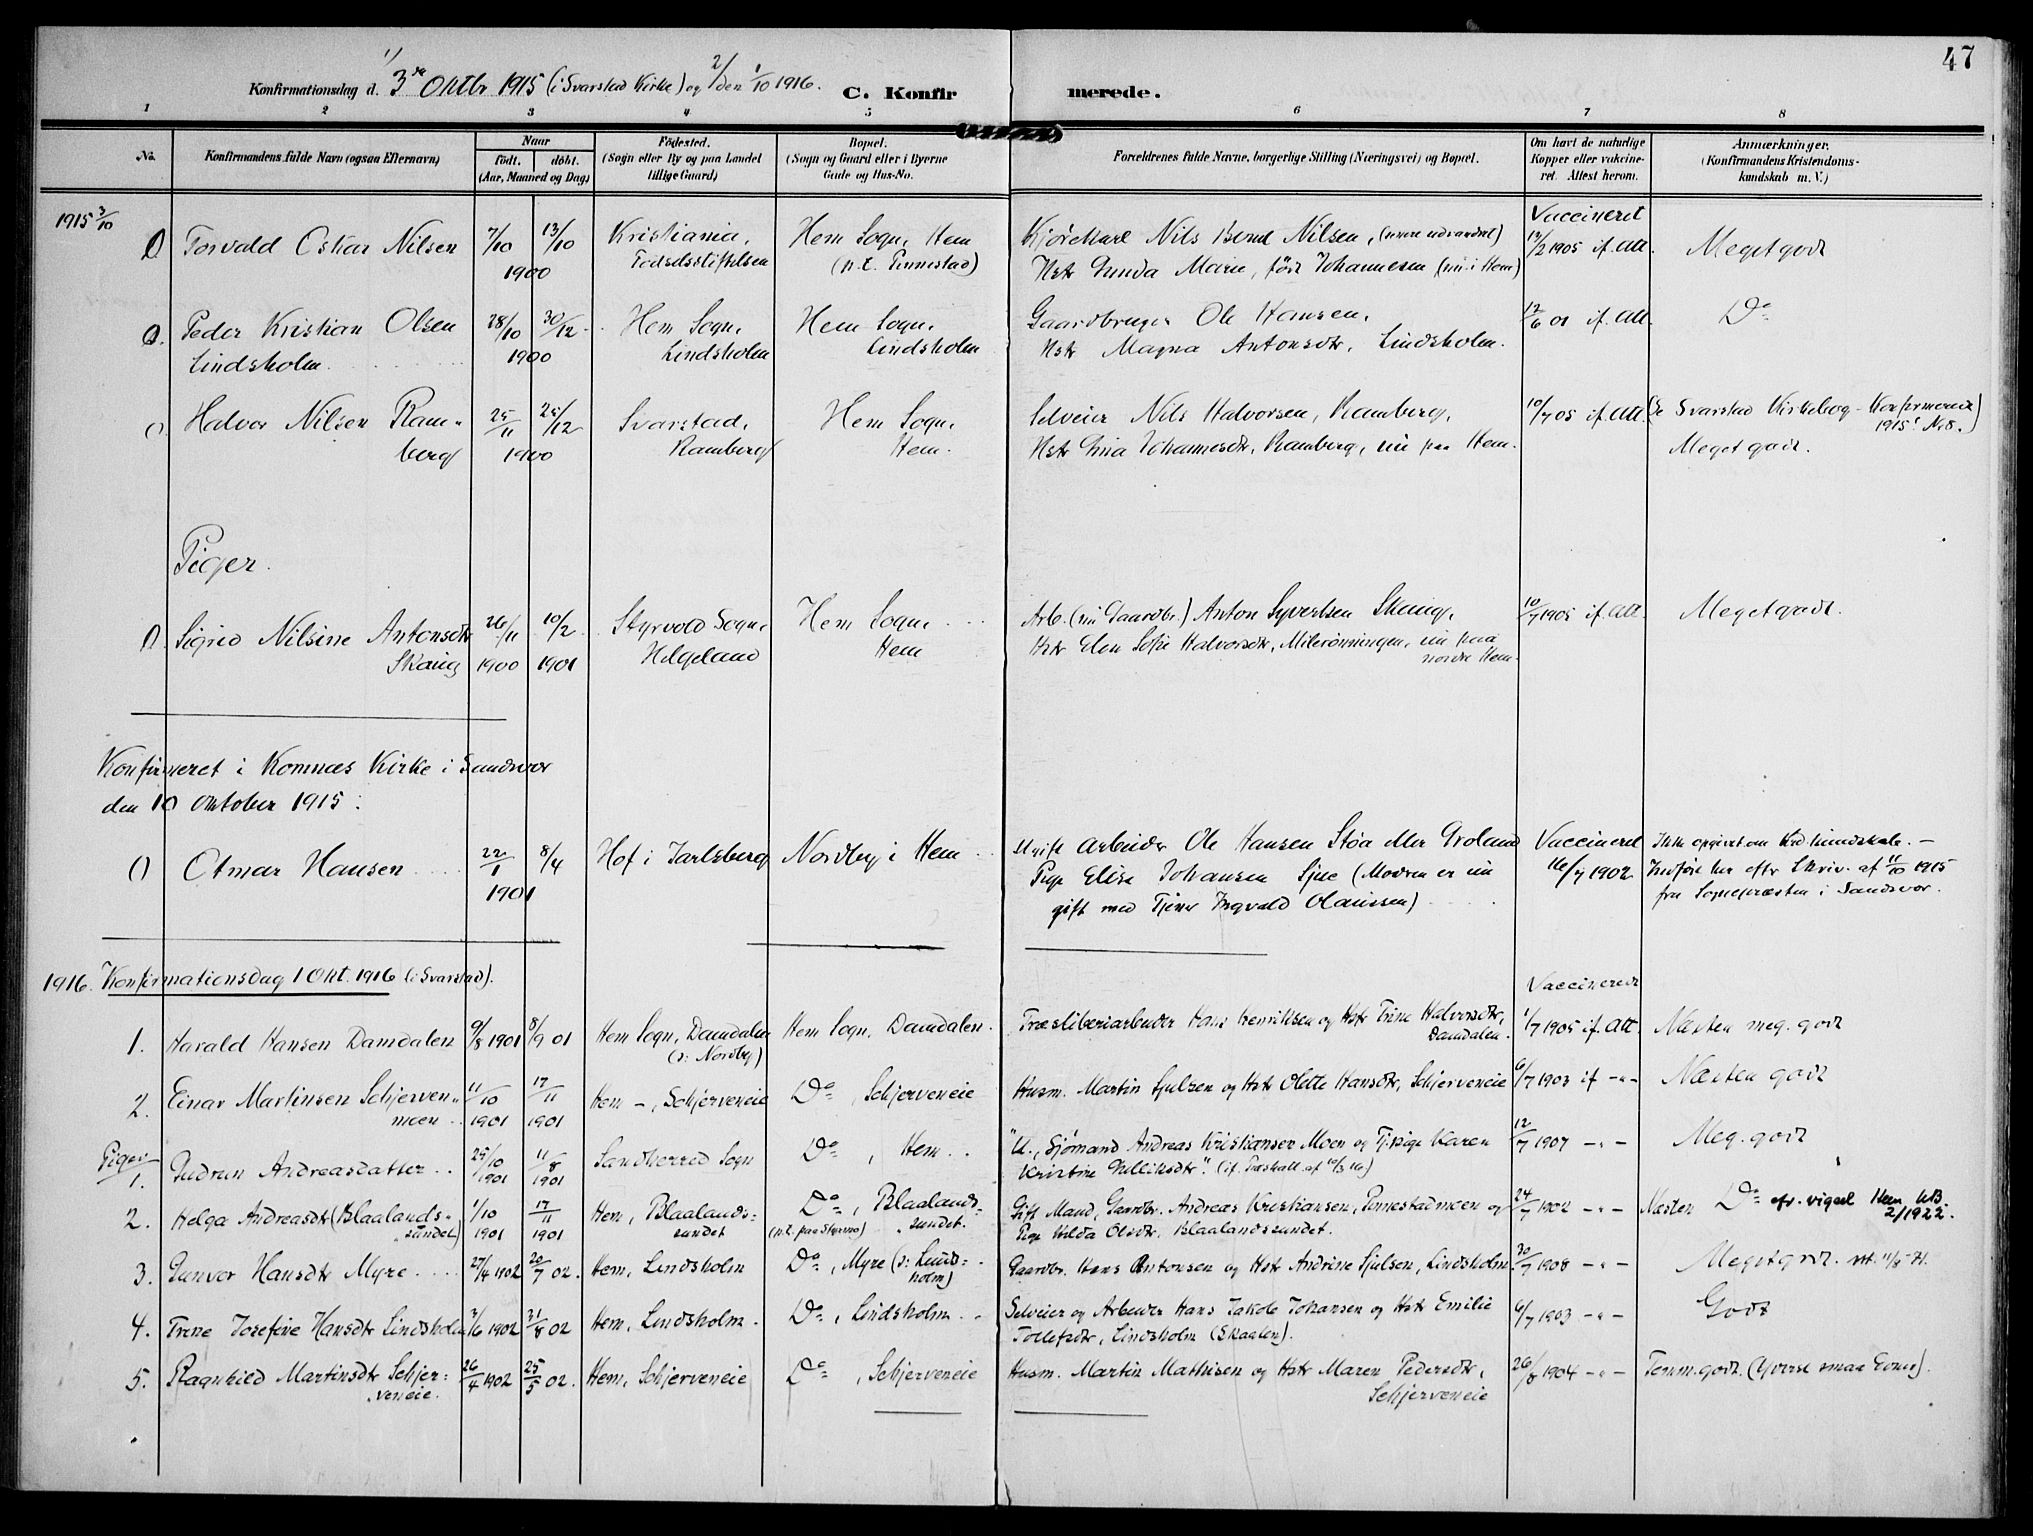 47
1/ 3die Oktbr 1915 (i Svarstad Kirke) og 2/ den 1/10 1916.
Konfirmationsdag d. C. Konfirmerede.
1 2 3 4 5 6 7 8
No. Konfirmandens fulde Navn (ogsaa Efternavn) Naar födt. döbt. (Aar, Maaned og Dag) Födested. (Sogn eller By og paa Landet tillige Gaard) Bopæl. (Sogn og Gaard eller i Byerne Gade og Hus-No. Forældrenes fulde Navne, borgerlige Stilling (Næringsvei) og Bopæl. Om havt de naturlige Kopper eller vaccineret. Attest herom. Anmærkninger. (Konfirmandens Kristendomskundskab m. V.)
1915 3/10 Vaccineret
Torvald Oskar Nilsen 7/10 13/10 Kristiania, Hem Sogn, Hem Kjørekarl Nils Bernt Nilsen, 13/2 1905 if. Att. Meget godt
1900 Fødselsstiftelsen Hstr Gunda Marie, født Johannesen (nu i Hem)
Peder Kristian Olsen 28/10 30/12 Hem Sogn, Hem Sogn, Gaardbruger Ole Hansen, 12/6 01 if. Att. Do
Lindsholm 1900 Lindsholm Lindsholm Hstr Magna Antonsdtr, Lindsholm.
Halvor Nilsen Ram- 25/11 25/12 Svarstad, Hem Sogn, Selveier Nils Halvorsen, Ramberg, 10/7 05 if. Att. (Se Svarstad Kirkebog - Konfirmerede 1915! No 8.)
berg 1900 Ramberg Hem. Hstr Gina Johannesdtr, Ramberg, nu paa Hem. Meget godt.
Piger.
Sigrid Nilsine Antonsdtr 26/11 10/2 Styrvold Sogn, Hem Sogn Arb. (nu Gaardbr.) Anton Syvertsen Skaug, 10/7 1905 if. Att. Meget godt.
Skaug 1900 1901 Helgeland Hem Hstr Elen Sofie Halvorsdtr, nu paa
nordre Hem.
Konfirmeret i Komnæs Kirke i Sandsvær
den 10 Oktober 1915:
Otmar Hansen 22/1 8/4 Hof i Jarlsberg Nordby i Hem Ugift Arbeider Ole Hansen Støa eller Groland Vaccineret Ikke opgivet om Krd. kundskab. -
1901 Pige Elise Johansen (Modren er nu 16/7 1902 Indført her efter Skriv. af 11/10 1915
gift med Tjener Ingvald Olaussen) fra Sognepræsten i Sandsvær.
1916. Konfirmationsdag 1 Okt. 1916 (i Svarstad). Vaccinerede
1. Harald Hansen Damdalen 9/8 1901 8/9 01 Hem Sogn, Damdalen Hem Sogn, Damdalen. Træsliberiarbeider Hans Henriksen og Hstr Trine Halvorsdtr, 1/7 1905 if. Att. Næsten meg. godt
(o: Nordby) Damdalen.
2. Einar Martinsen Schjerven- 11/10 17/11 Hem -, Schjerveneie Do, Schjerveneie Husm. Martin Sjulsen og Hstr Olette Hansdtr, Schjerveneie 6/7 1903 if -"- Næsten godt
moen 1901 1901
Piger 1. Gudrun Andreasdatter 25/10 11/8 Sandherred Sogn Do, Hem "U., Sjømand Andreas Kristiansen Moen og Karen 12/7 1907 -"- Meg. godt
1901 1901 Kristine Gulliksdtr".
2. Helga Andreasdtr (Blaalands- 1/10 17/11 Hem, Blaalands- Do, Blaalands- Gift Mand, Gaardbr. Andreas Kristiansen, Pinnestadmoen og 24/7 1902 -"- Næsten Do efv. vigsel Hem KB.
sundet) 1901 1901 sundet sundet. Pige Hilda Olsdtr. Blaalandssundet. 2/1922.
3. Gunvor Hansdtr Myre 27/4 1902 20/7 02. Hem, Lindsholm Do, Myre (o: Lindsholm) Gaardbr. Hans Antonsen og Hstr Andrine Sjulsen, Lindsholm 30/7 1908 -"- Meget godt.
4. Trine Josefine Hansdtr Lindsholm 3/6 1902 31/8 02 Hem, Lindsholm. Do, Lindsholm Selveier og Arbeider Hans Jakob Johansen og Hstr Emilie 6/7 1903 -"- Godt
Tollefsdtr, Lindsholm (Skaalen).
5. Ragnhild Martinsdtr Schjer- 26/4 1902 25/5 02. Hem, Schjerveneie Do, Schjerveneie Husm. Martin Mathisen og Hstr Maren Pedersdtr, 26/8 1904 -"- Temm. godt. (Yderst smaa Evner).
veneie. Schjerveneie